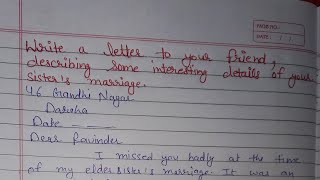 PAGE NO.:
DATE: / /
Write a letter to your friend,
describing some interesting details of your
sister's marriage.
46 Gandhi Nagar
Daresha
Date - - -
Dear Ravinder
I missed you badly at the time
of my elder sister's marriage. It was an